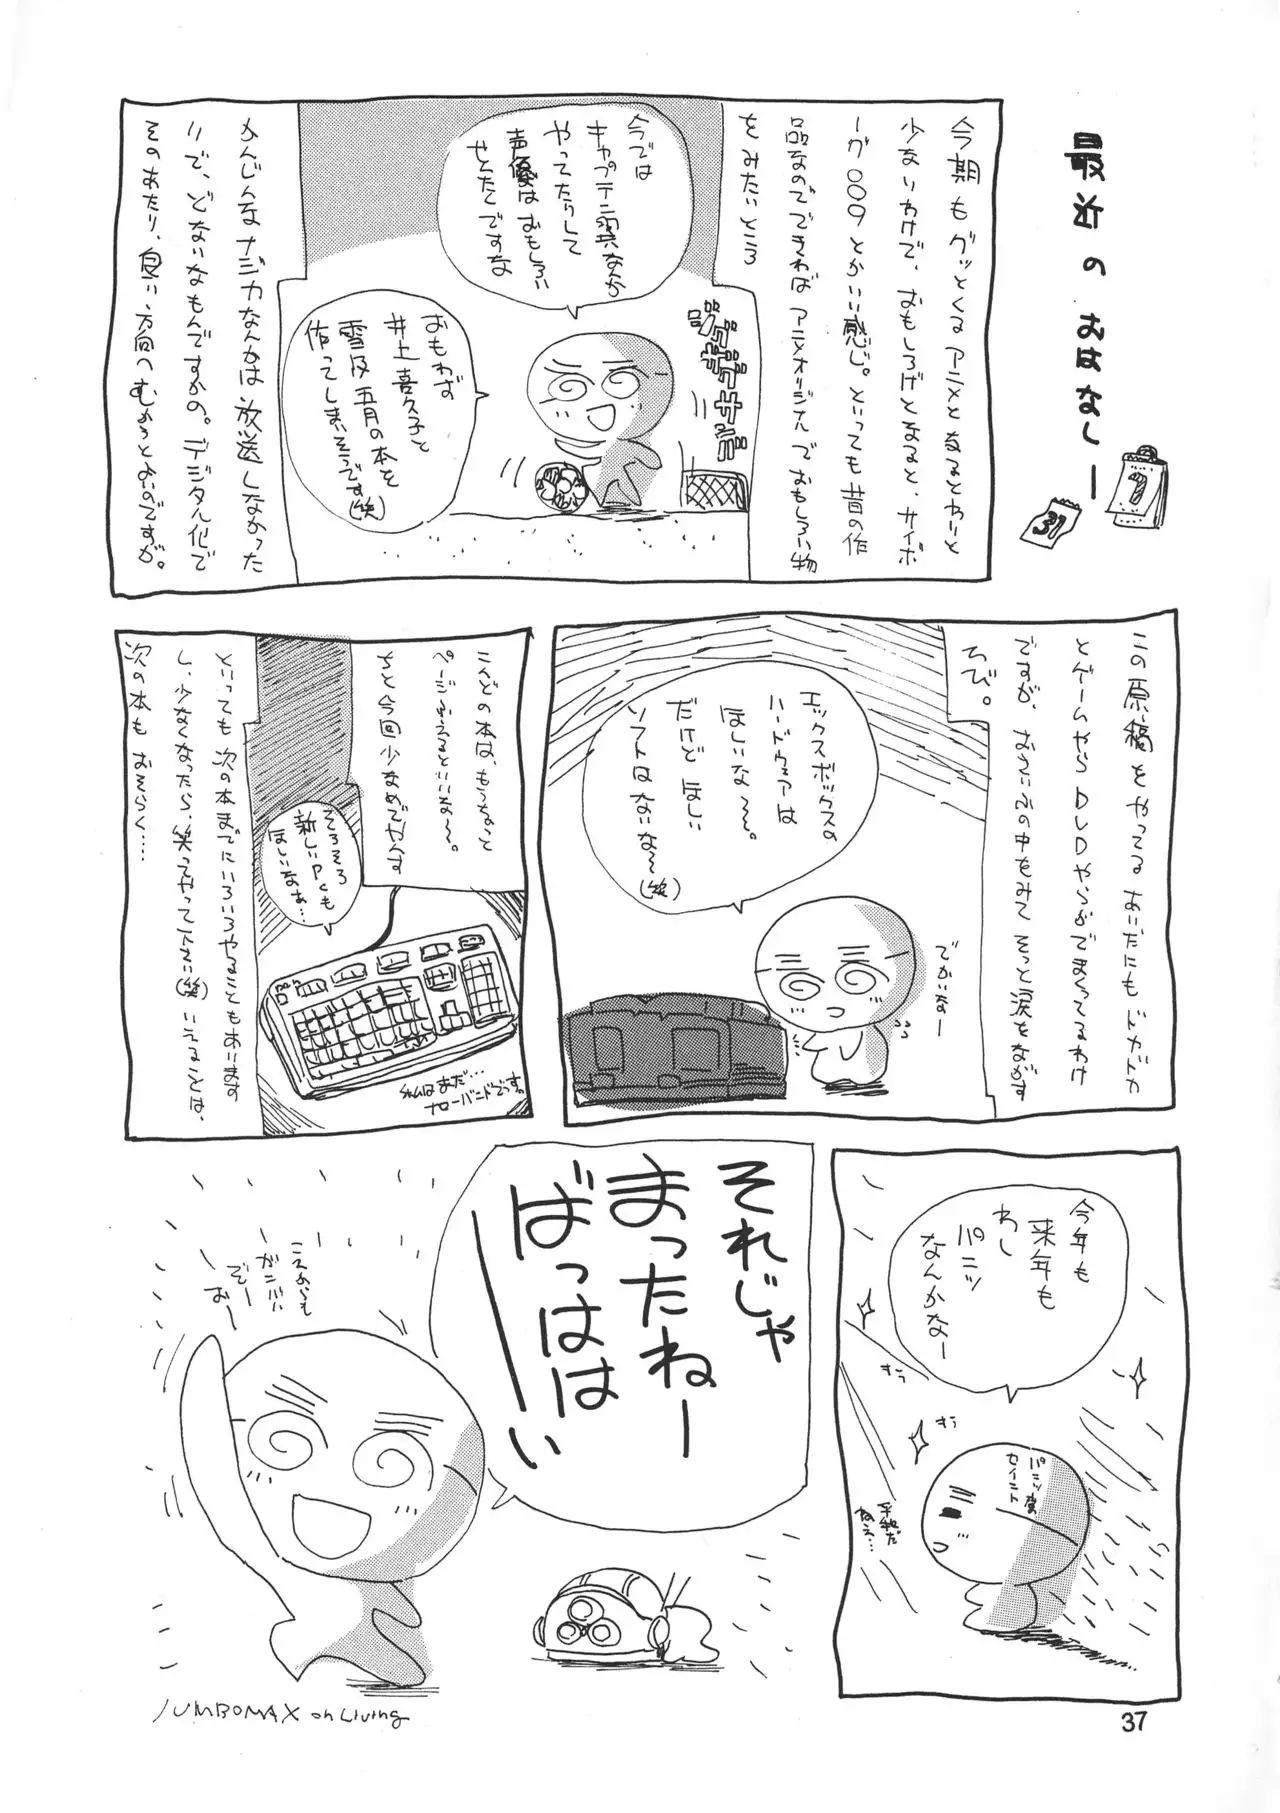 最近のおはなしー
7
31
今期もグッとくるアニメとなるとわりと
少ないわけで、おもしろげとなると、サイボ
ーグ009とかいい感じ。といっても昔の作
品なのでできればアニメオリジナルでおもしろい物
をみたいところ
今では
キャプテン翼なんか
やってたりして
声優はおもしろい
せんたくですな
おもわず
井上喜久子と
雪乃五月の本を
作ってしまいそうです(笑)
かんじんなナジカなんかは放送しなかった
りで、どないなもんですかの。デジタル化で
そのあたり、良い方向へむかうとよいのですが。
この原稿をやってるあいだにもドカドカ
とゲームやらDVDやらがでまくってるわけ
ですが、おさいふの中をみてそっと涙をながす
日び。
エックスボックスの
ハードウェアは
ほしいな〜。
だけどほしい
ソフトはないな〜(笑)
でかいなー
こんどの本は、もうちょっと
ページふえるといいな〜。
ちと今回少なめでやんす
そろそろ
新しいPCも
ほしいなぁ…
といっても次の本までにいろいろやることもあります
し、少なくなったら、笑ってやって下さい(笑)いえることは、
次の本もおそらく……
うちはまだ…
ナローバンドでっす。
今年も
来年も
わし
パンツ
なんかなー
すぅ
すぅ
パンツ番長
セイント
平和だ
ねぇ…
それじゃ
まったねー
ばっはは
ーい
これからも
ガンバル
ぞー
おー
JUMBOMAX on Living
37